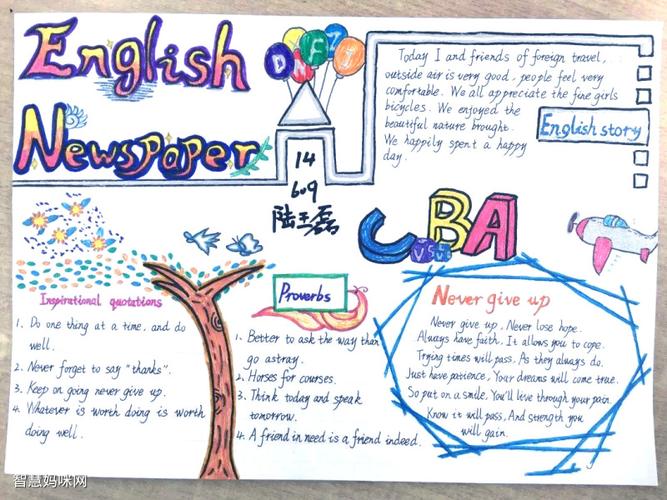 English
Newspaper
14
609
陆玉磊
Today I and friends of foreign travel,
outside air is very good, people feel very
comfortable. We all appreciate the fine girls
bicycles. We enjoyed the
beautiful nature brought.
We happily spent a happy
day.
English story
CBA
Inspirational quotations
1. Do one thing at a time, and do
well.
2. Never forget to say "thanks".
3. Keep on going never give up.
4. Whatever is worth doing is worth
doing well.
Proverbs
1. Better to ask the way than
go astray.
2. Horses for courses.
3. Think today and speak
tomorrow.
4. A friend in need is a friend indeed.
Never give up
Never give up, Never lose hope.
Always have faith, It allows you to cope.
Trying times will pass, As they always do.
Just have patience, Your dreams will come true.
So put on a smile, You'll live through your pain.
Know it will pass, And strength you
will gain.
智慧妈咪网